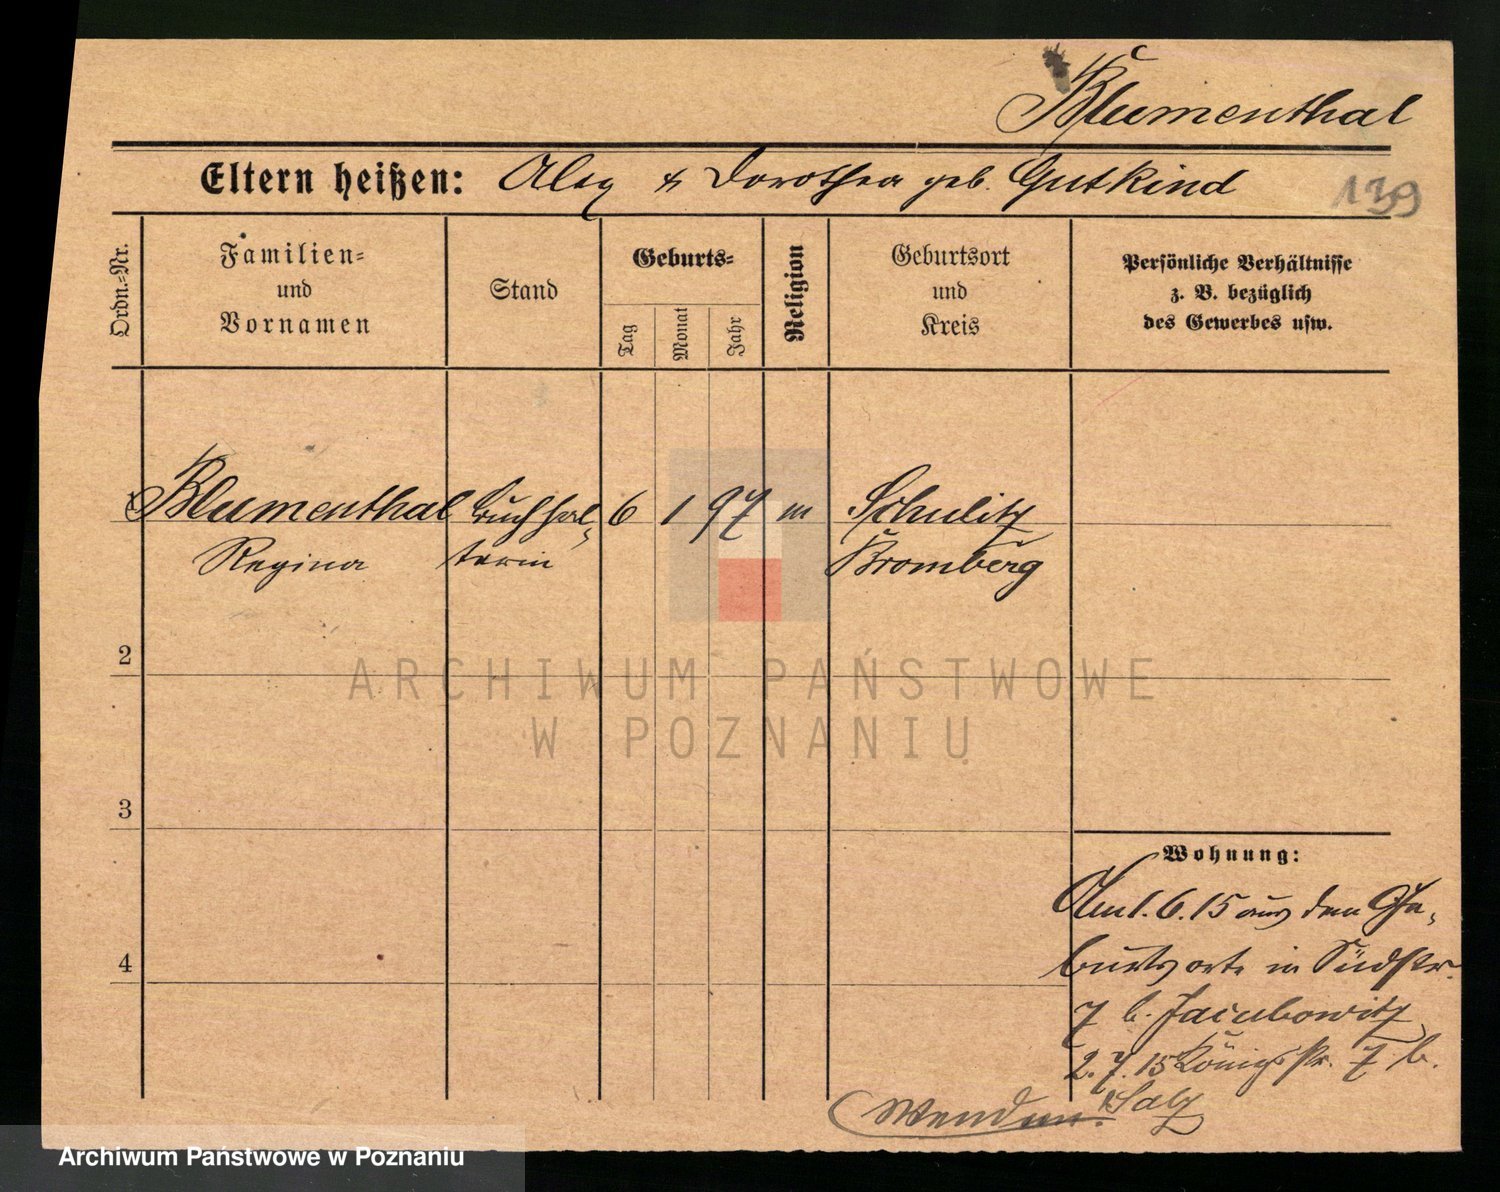 Blumenthal
Eltern heißen: Alex & Dorothea geb. Gutkind
139
Ordn.=Nr.
Familien=
und
Vornamen
Stand
Geburts=
Tag
Monat
Jahr
Religion
Geburtsort
und
Kreis
Persönliche Verhältnisse
z. B. bezüglich
des Gewerbes usw.
Blumenthal Buchhal- 6 1 97 m Schulitz
Regina terin Bromberg
2
3
4
ARCHIWUM PAŃSTWOWE
W POZNANIU
Wohnung:
Am 1.6.15 aus dem Ge-
burtsorte in Südstr.
7 b. Jacubowitz
2.7.15 Königstr. 7 b.
Salz
Wenden!
Archiwum Państwowe w Poznaniu